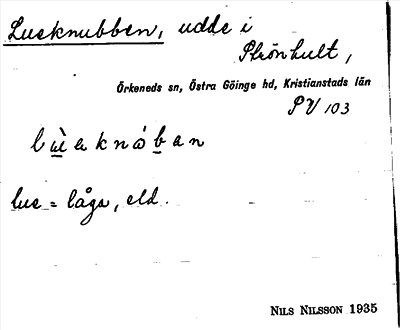 Lueknubben, udde i
Strönhult,
Örkeneds sn, Östra Göinge hd, Kristianstads län
PV 103
lue = låga, eld.
NILS NILSSON 1935